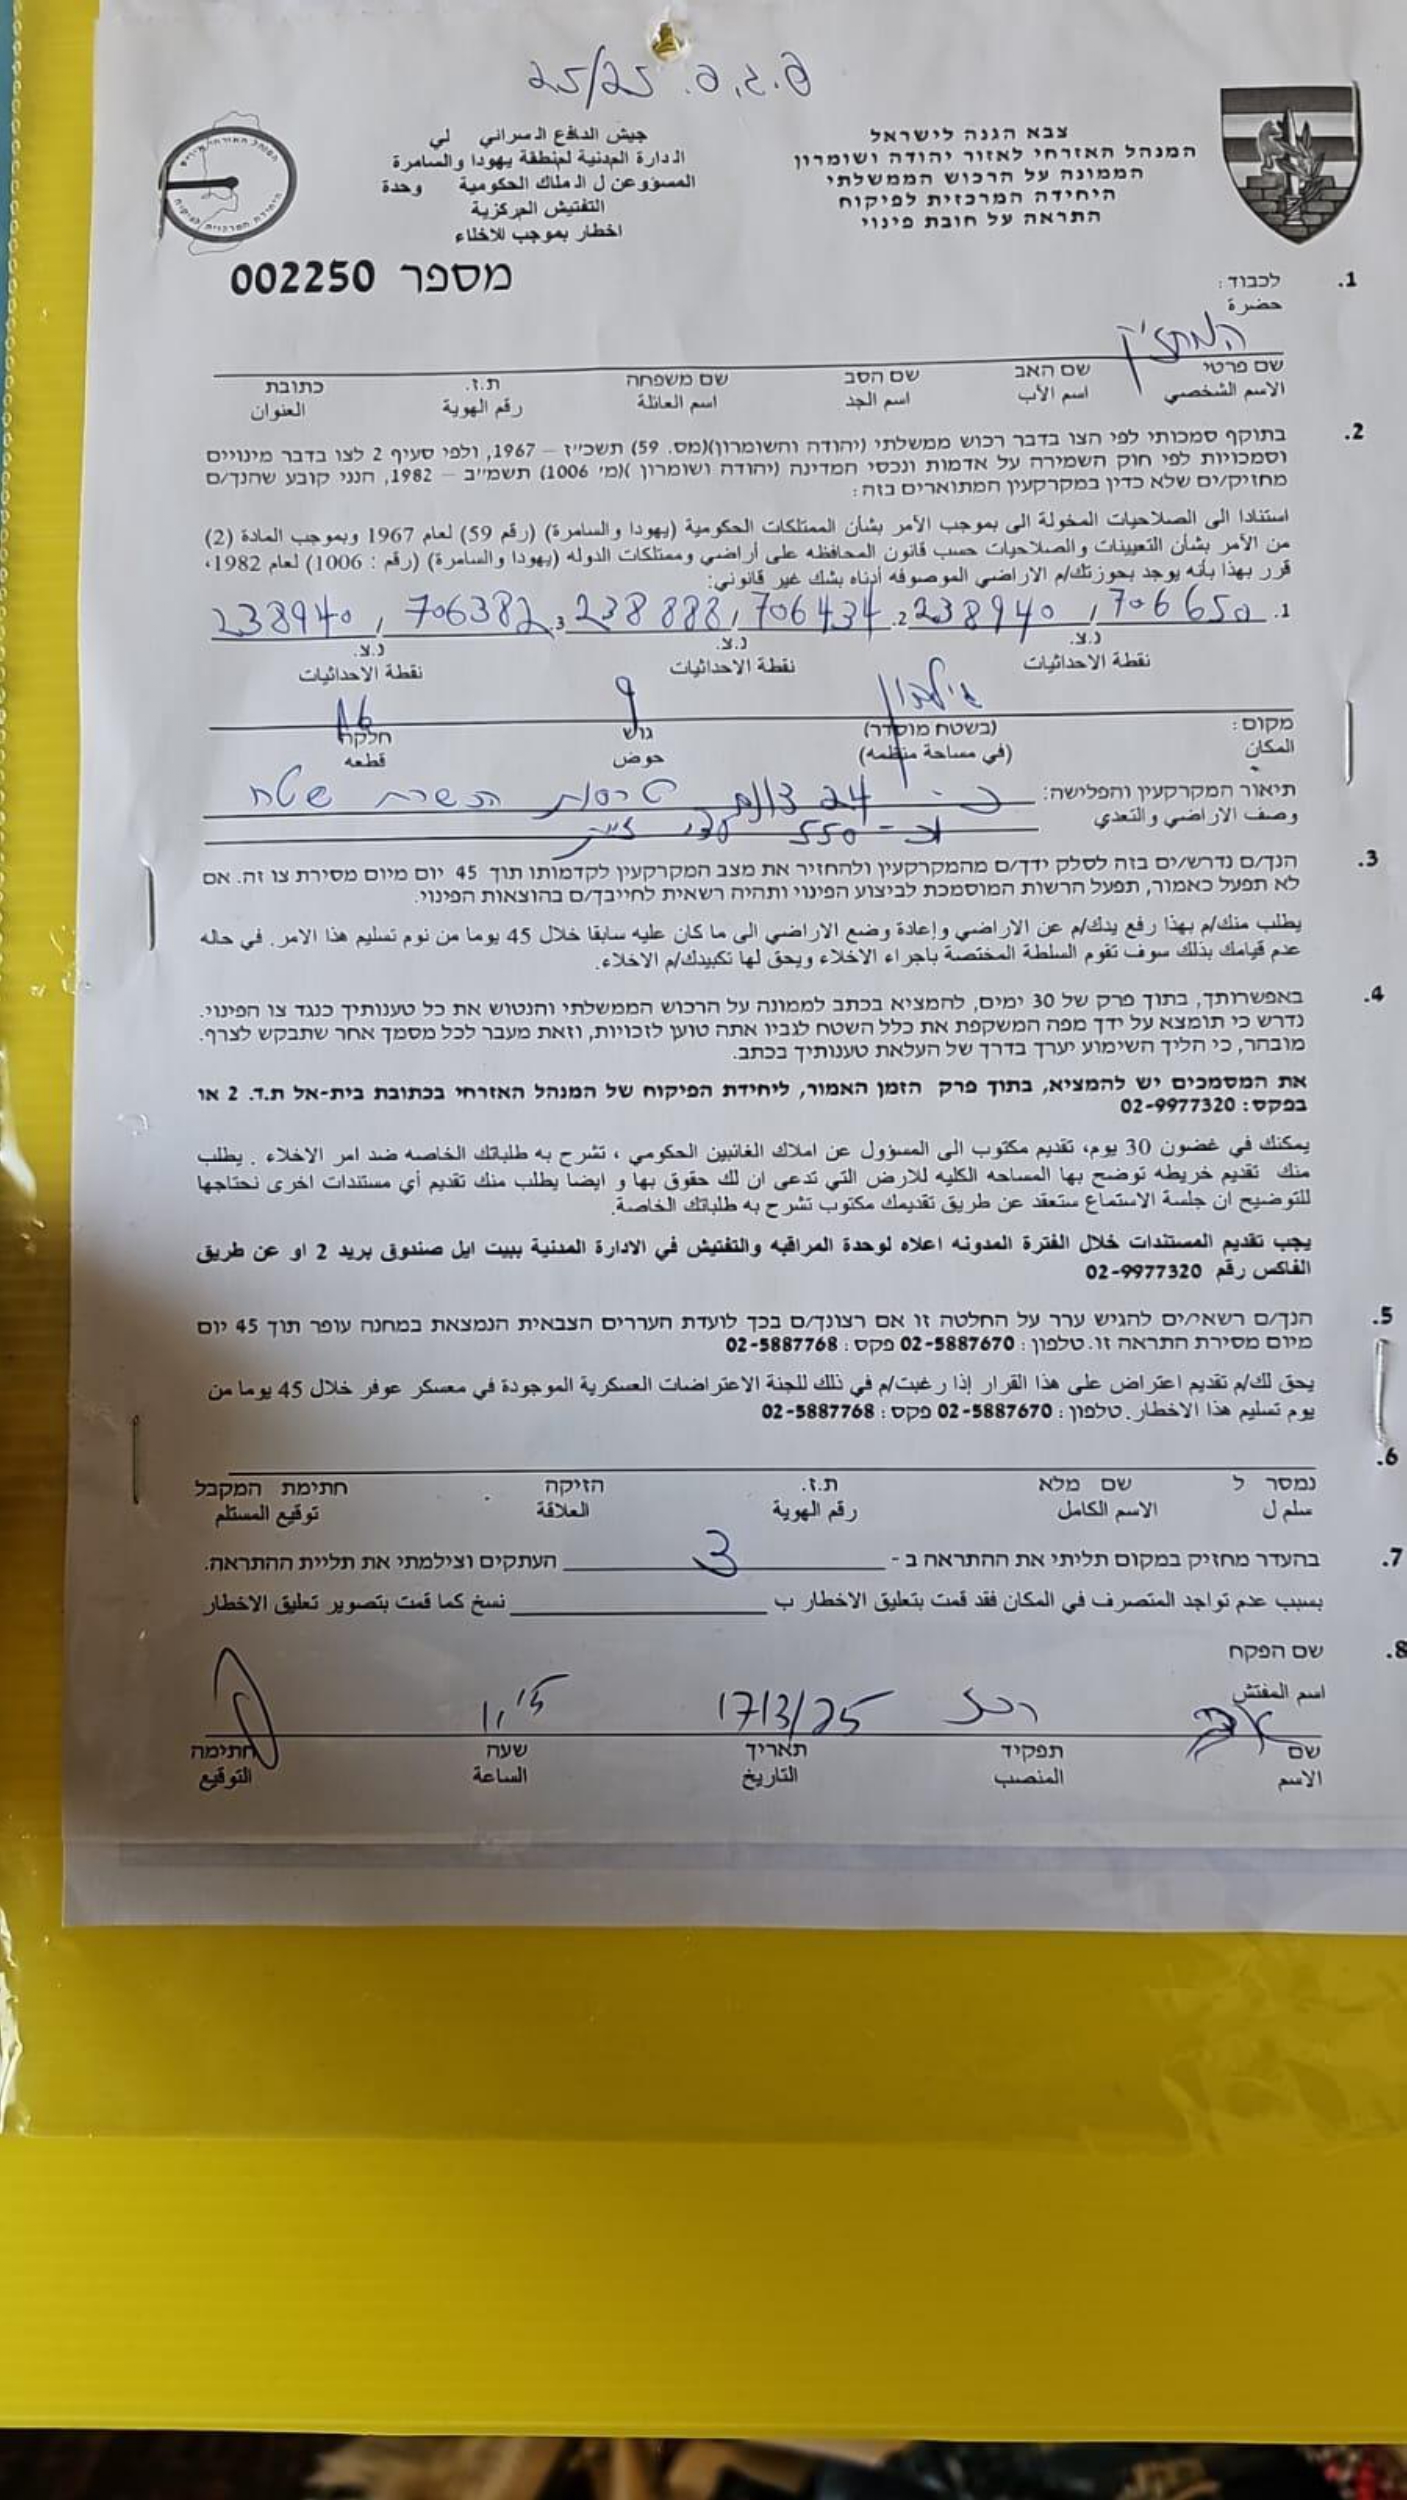 פ.ג.פ. 25/25
צבא הגנה לישראל
המנהל האזרחי לאזור יהודה ושומרון
הממונה על הרכוש הממשלתי
היחידה המרכזית לפיקוח
התראה על חובת פינוי
جيش الدافع الـسراني لي
الـدارة المدنية لمنطقة يهودا والسامرة
المسؤو عن ل الـملك الحكومية وحدة
التفتيش المركزية
اخطار بموجب للاخلاء
מספר 002250
1. לכבוד:
חضرة
המחזיק
שם פרטי שם האב שם הסב שם משפחה ת.ז. כתובת
الاسم الشخصي اسم الأب اسم الجد اسم العائلة رقم الهوية العنوان
2. בתוקף סמכותי לפי הצו בדבר רכוש ממשלתי (יהודה והשומרון)(מס. 59) תשכ״ז – 1967, ולפי סעיף 2 לצו בדבר מינויים
וסמכויות לפי חוק השמירה על אדמות ונכסי המדינה (יהודה ושומרון )(מ׳ 1006) תשמ״ב – 1982, הנני קובע שהנך/ם
מחזיק/ים שלא כדין במקרקעין המתוארים בזה:
استنادا الى الصلاحيات المخولة الى بموجب الأمر بشأن الممتلكات الحكومية (يهودا والسامرة) (رقم 59) لعام 1967 وبموجب المادة (2)
من الأمر بشأن التعيينات والصلاحيات حسب قانون المحافظه على أراضي وممتلكات الدوله (يهودا والسامرة) (رقم : 1006) لعام 1982،
قرر بهذا بأنه يوجد بحوزتك/م الاراضي الموصوفه أدناه بشك غير قانوني:
1. 706650 / 238940 2. 706434 / 238888 3. 706382 / 238940
נ.צ. נ.צ. נ.צ.
نقطة الاحداثيات نقطة الاحداثيات نقطة الاحداثيات
גילבון 9 16
מקום: (בשטח מוסדר) גוש חלקה
المكان (في مساحة منظمه) حوض قطعه
תיאור המקרקעין והפלישה: כ- 24 דונם טרסות הכשרת שטח
وصف الاراضي والتعدي כ- 550 עצי זית
3. הנך/ם נדרש/ים בזה לסלק ידך/ם מהמקרקעין ולהחזיר את מצב המקרקעין לקדמותו תוך 45 יום מיום מסירת צו זה. אם
לא תפעל כאמור, תפעל הרשות המוסמכת לביצוע הפינוי ותהיה רשאית לחייבך/ם בהוצאות הפינוי.
يطلب منك/م بهذا رفع يدك/م عن الاراضي وإعادة وضع الاراضي الى ما كان عليه سابقا خلال 45 يوما من نوم تسليم هذا الامر. في حاله
عدم قيامك بذلك سوف تقوم السلطة المختصة باجراء الاخلاء ويحق لها تكبيدك/م الاخلاء.
4. באפשרותך, בתוך פרק של 30 ימים, להמציא בכתב לממונה על הרכוש הממשלתי והנטוש את כל טענותיך כנגד צו הפינוי.
נדרש כי תומצא על ידך מפה המשקפת את כלל השטח לגביו אתה טוען לזכויות, וזאת מעבר לכל מסמך אחר שתבקש לצרף.
מובהר, כי הליך השימוע יערך בדרך של העלאת טענותיך בכתב.
את המסמכים יש להמציא, בתוך פרק הזמן האמור, ליחידת הפיקוח של המנהל האזרחי בכתובת בית-אל ת.ד. 2 או
בפקס: 02-9977320
يمكنك في غضون 30 يوم، تقديم مكتوب الى المسؤول عن املاك الغائبين الحكومي ، تشرح به طلباتك الخاصه ضد امر الاخلاء . يطلب
منك تقديم خريطه توضح بها المساحه الكليه للارض التي تدعى ان لك حقوق بها و ايضا يطلب منك تقديم أي مستندات اخرى نحتاجها
للتوضيح ان جلسة الاستماع ستعقد عن طريق تقديمك مكتوب تشرح به طلباتك الخاصة.
يجب تقديم المستندات خلال الفترة المدونه اعلاه لوحدة المراقبه والتفتيش في الادارة المدنية ببيت ايل صندوق بريد 2 او عن طريق
الفاكس رقم 02-9977320
5. הנך/ם רשאי/ים להגיש ערר על החלטה זו אם רצונך/ם בכך לועדת העררים הצבאית הנמצאת במחנה עופר תוך 45 יום
מיום מסירת התראה זו. טלפון: 02-5887670 פקס: 02-5887768
يحق لك/م تقديم اعتراض على هذا القرار إذا رغبت/م في ذلك للجنة الاعتراضات العسكرية الموجودة في معسكر عوفر خلال 45 يوما من
يوم تسليم هذا الاخطار. טלפון: 02-5887670 פקס: 02-5887768
6.
נמסר ל שם מלא ת.ז. הזיקה חתימת המקבל
سلم ل الاسم الكامل رقم الهوية العلاقة توقيع المستلم
7. בהעדר מחזיק במקום תליתי את ההתראה ב- 3 העתקים וצילמתי את תליית ההתראה.
بسبب عدم تواجد المتصرف في المكان فقد قمت بتعليق الاخطار ب نسخ كما قمت بتصوير تعليق الاخطار
8. שם הפקח
اسم المفتش
רכז 17/3/25
שם תפקיד תאריך שעה חתימה
الاسم المنصب التاريخ الساعة التوقيع